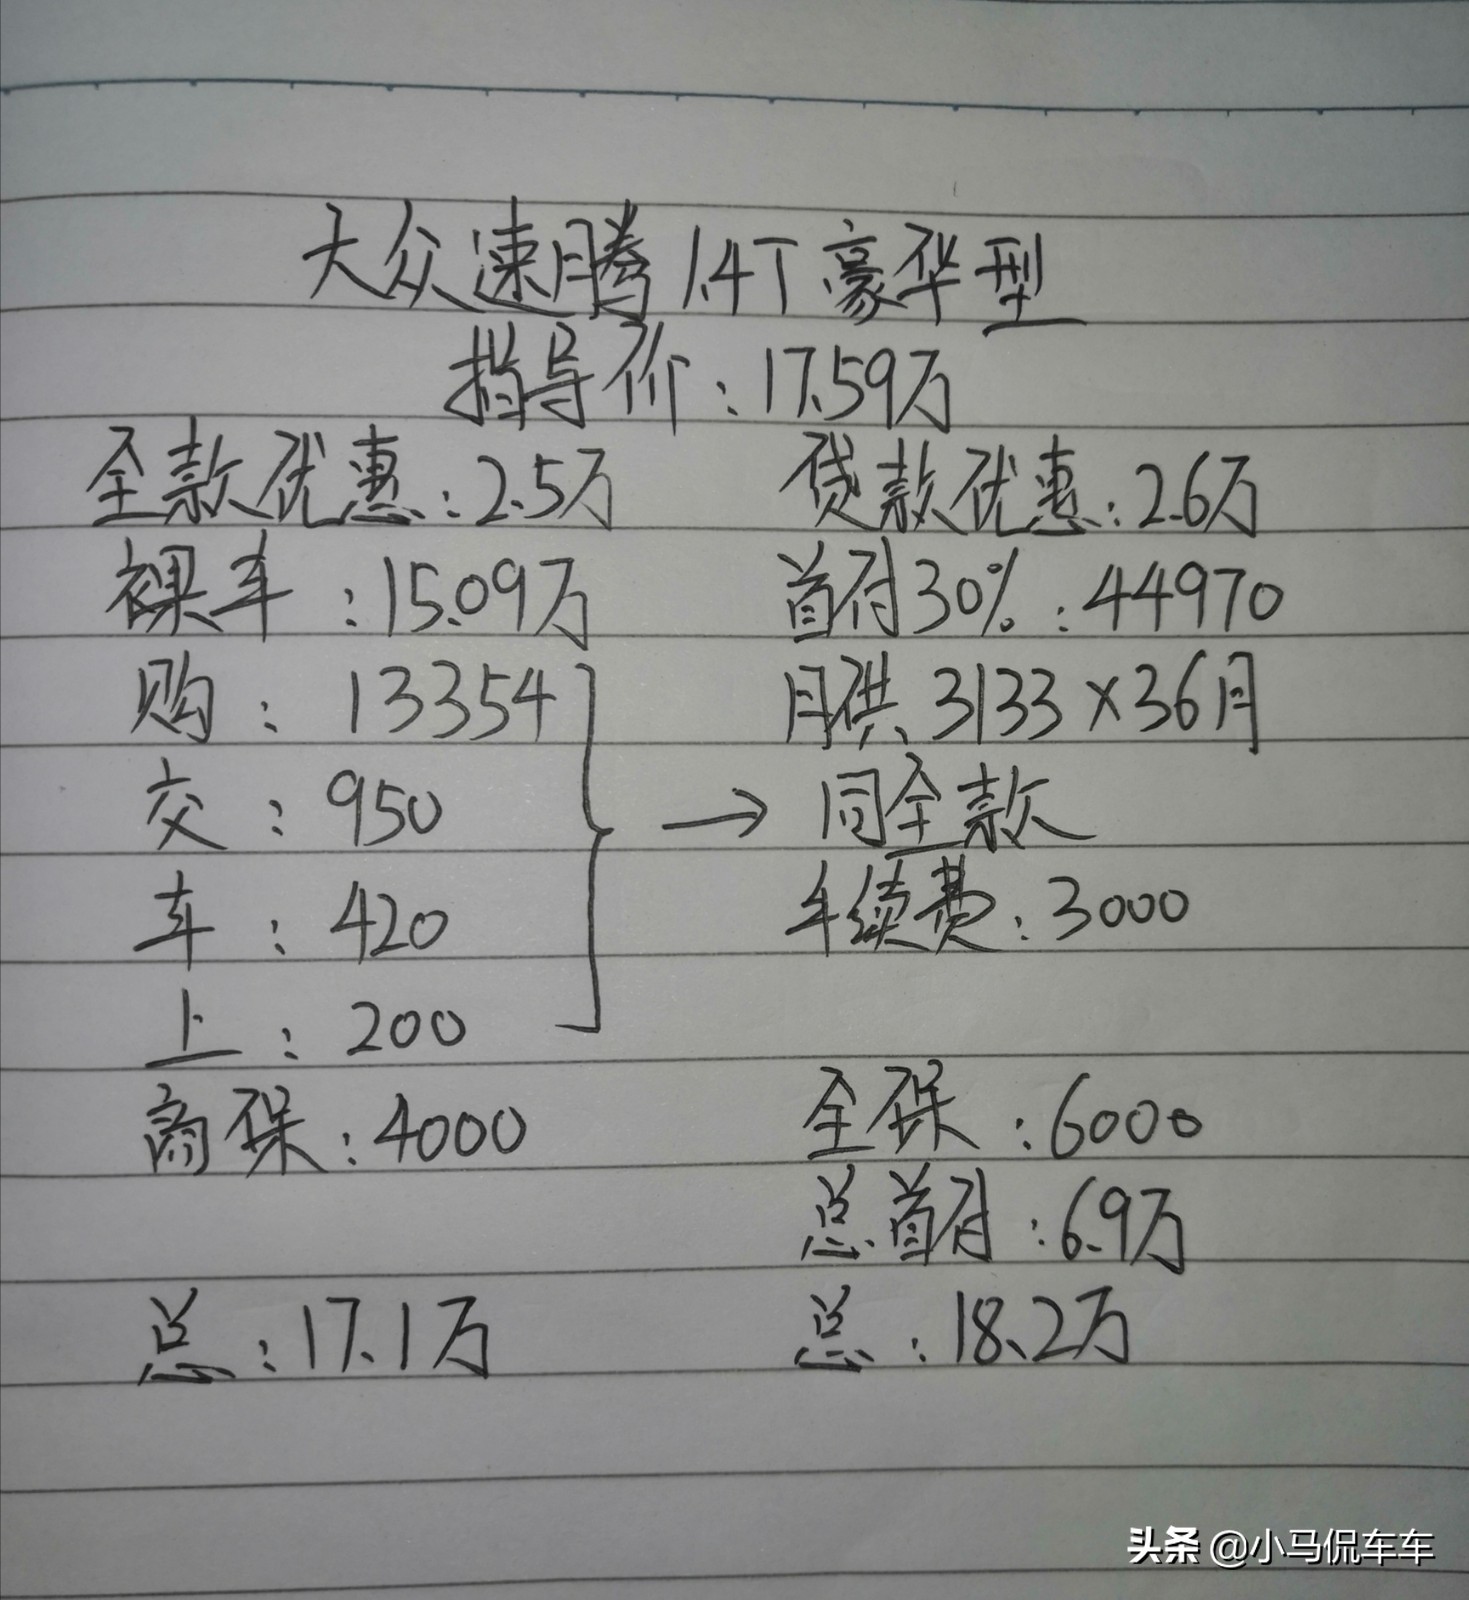 大众速腾1.4T豪华型
指导价：17.59万
全款优惠：2.5万 贷款优惠：2.6万
裸车：15.09万 首付30%：44970
购：13354 月供 3133×36月
交：950 → 同全款
车：420 手续费：3000
上：200
商保：4000 全保：6000
总首付：6.9万
总：17.1万 总：18.2万
头条 @小马侃车车